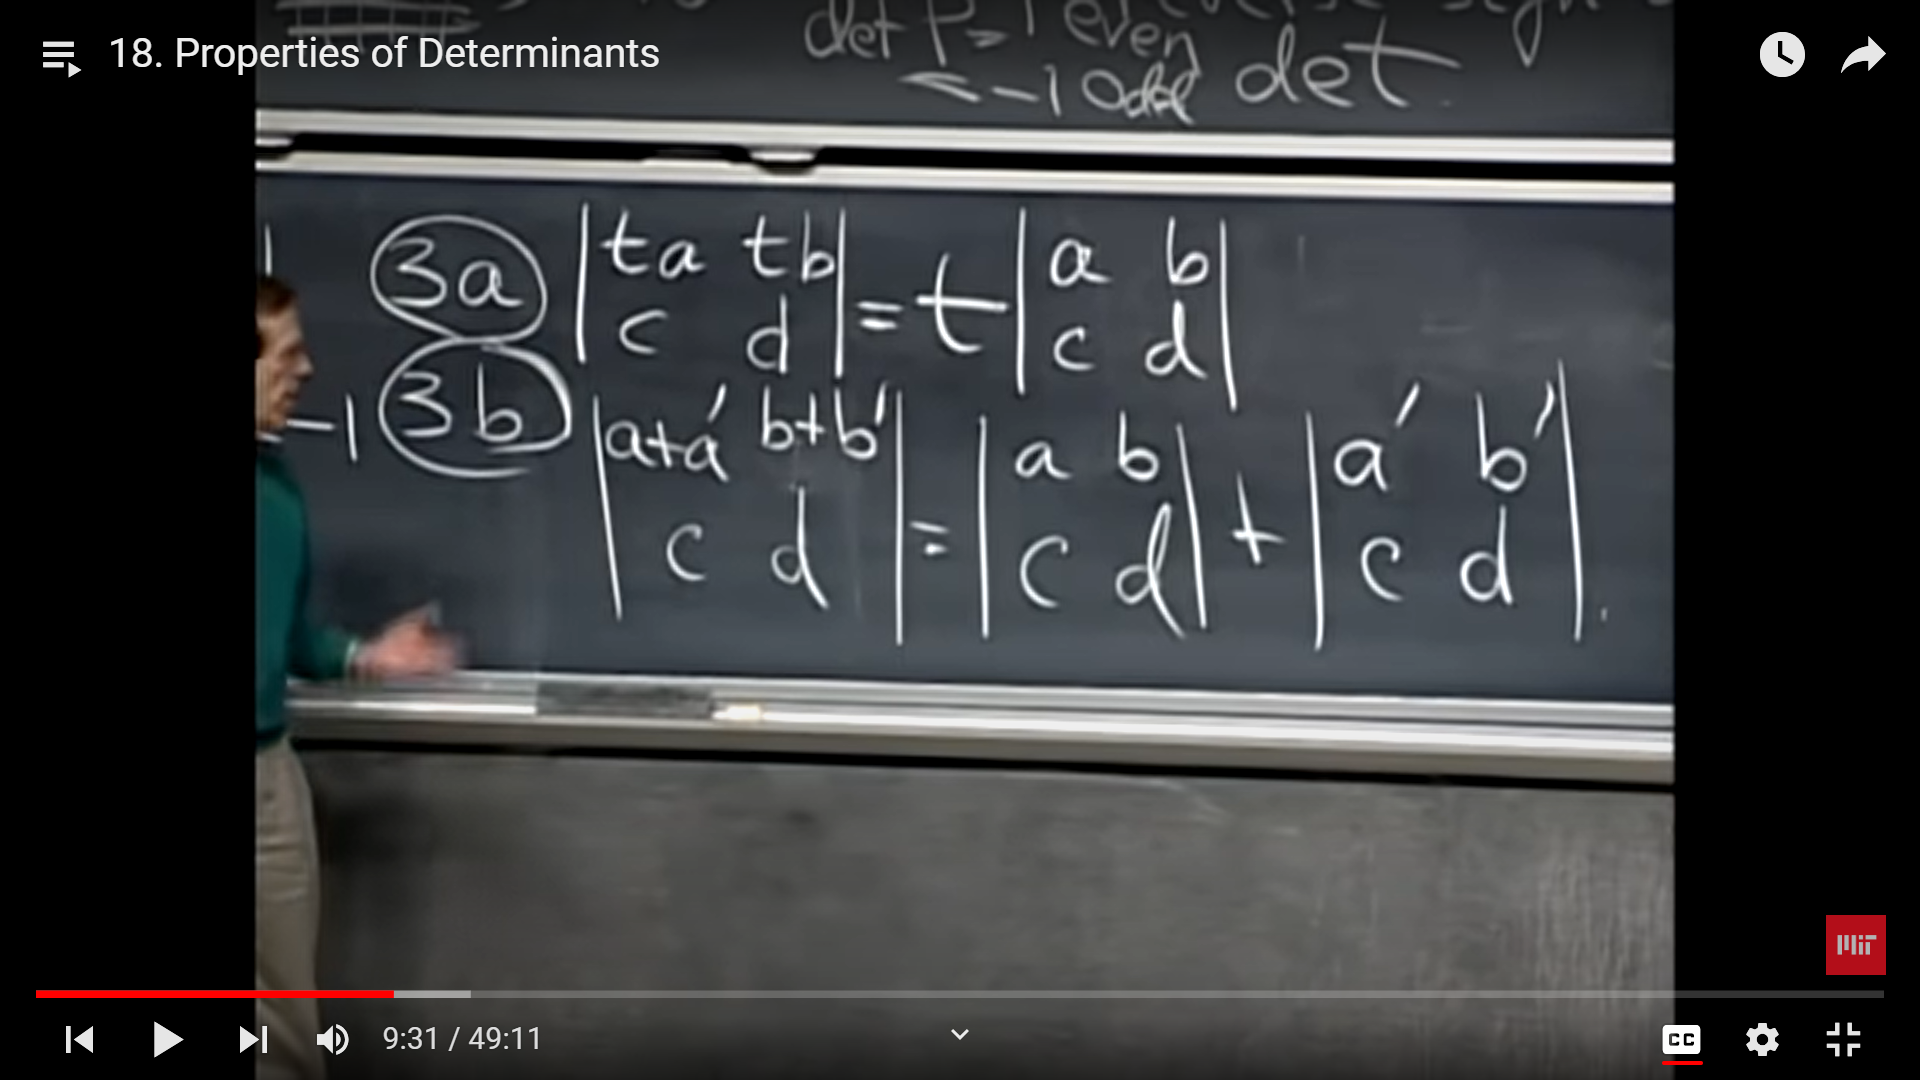 18. Properties of Determinants
det P = 1 even
-1 odd det.
3a |ta tb| = t |a b|
|c d| |c d|
-1 3b |a+a' b+b'| = |a b| + |a' b'|
|c d| |c d| |c d|.
MIT
9:31 / 49:11
CC